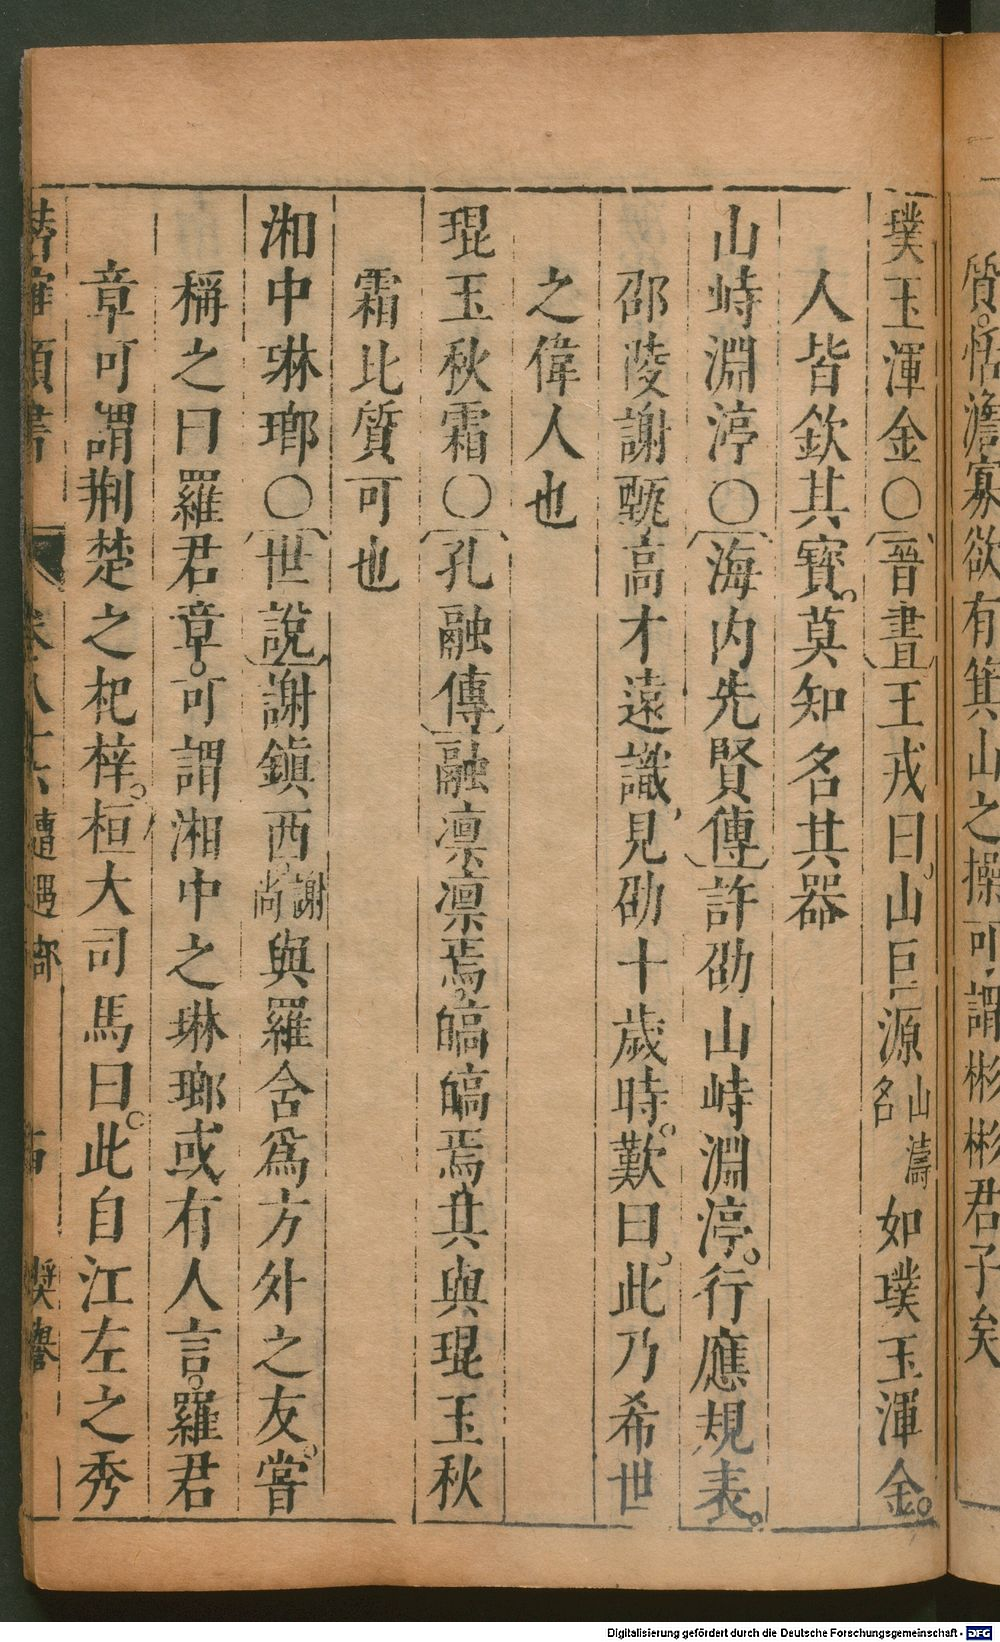 質。恬澹寡欲有箕山之操可謂彬彬君子矣
璞玉渾金〇晉書王戎曰。山巨源山濤名如璞玉渾金。
人皆欽其寶。莫知名其器
山峙淵渟〇海内先賢傳許劭山峙淵渟。行應規表。
邵陵謝甄高才遠識、見劭十歲時。歎曰。此乃希世
之偉人也
琨玉秋霜〇孔融傳融凛凛焉。皜皜焉其與琨玉秋
霜比質可也
湘中琳瑯〇世說謝鎮西。謝尚與羅含爲方外之友。嘗
稱之曰羅君章。可謂湘中之琳瑯或有人言。羅君
章可謂荆楚之杞梓。桓大司馬曰。此自江左之秀
潛確類書 卷八十六 遭遇部 奬譽
Digitalisierung gefördert durch die Deutsche Forschungsgemeinschaft - DFG